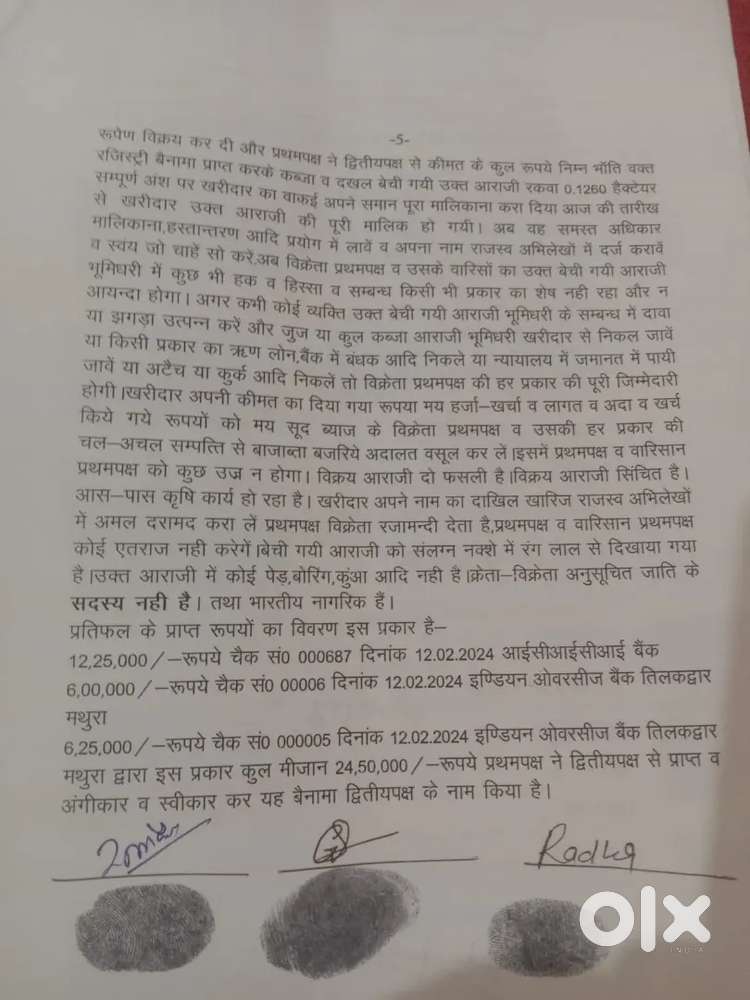 -5-
रूपेण विक्रय कर दी और प्रथमपक्ष ने द्वितीयपक्ष से कीमत के कुल रूपये निम्न भॉति वक्त
रजिस्ट्री बैनामा प्राप्त करके कब्जा व दखल बेची गयी उक्त आराजी रकवा 0.1260 हैक्टेयर
सम्पूर्ण अंश पर खरीदार का वाकई अपने समान पूरा मालिकाना करा दिया आज की तारीख
से खरीदार उक्त आराजी की पूरी मालिक हो गयी। अब वह समस्त अधिकार
मालिकाना,हस्तान्तरण आदि प्रयोग में लावें व अपना नाम राजस्व अभिलेखों में दर्ज करावें
व स्वय जो चाहें सो करें,अब विक्रेता प्रथमपक्ष व उसके वारिसों का उक्त बेची गयी आराजी
भूमिधरी में कुछ भी हक व हिस्सा व सम्बन्ध किसी भी प्रकार का शेष नही रहा और न
आयन्दा होगा। अगर कभी कोई व्यक्ति उक्त बेची गयी आराजी भूमिधरी के सम्बन्ध में दावा
या झगड़ा उत्पन्न करें और जुज या कुल कब्जा आराजी भूमिधरी खरीदार से निकल जावें
या किसी प्रकार का ऋण लोन,बैंक में बंधक आदि निकले या न्यायालय में जमानत में पायी
जावें या अटैच या कुर्क आदि निकलें तो विक्रेता प्रथमपक्ष की हर प्रकार की पूरी जिम्मेदारी
होगी।खरीदार अपनी कीमत का दिया गया रूपया मय हर्जा–खर्चा व लागत व अदा व खर्च
किये गये रूपयों को मय सूद ब्याज के विक्रेता प्रथमपक्ष व उसकी हर प्रकार की
चल–अचल सम्पत्ति से बाजाब्ता बजरिये अदालत वसूल कर लें।इसमें प्रथमपक्ष व वारिसान
प्रथमपक्ष को कुछ उज्र न होगा। विक्रय आराजी दो फसली है।विक्रय आराजी सिंचित है।
आस–पास कृषि कार्य हो रहा है। खरीदार अपने नाम का दाखिल खारिज राजस्व अभिलेखों
में अमल दरामद करा लें प्रथमपक्ष विक्रेता रजामन्दी देता है,प्रथमपक्ष व वारिसान प्रथमपक्ष
कोई एतराज नही करेगें।बेची गयी आराजी को संलग्न नक्शे में रंग लाल से दिखाया गया
है।उक्त आराजी में कोई पेड़,बोरिंग,कुंआ आदि नही है।क्रेता–विक्रेता अनुसूचित जाति के
सदस्य नही है। तथा भारतीय नागरिक हैं।
प्रतिफल के प्राप्त रूपयों का विवरण इस प्रकार है–
12,25,000/–रूपये चैक सं0 000687 दिनांक 12.02.2024 आईसीआईसीआई बैंक
6,00,000/–रूपये चैक सं0 00006 दिनांक 12.02.2024 इण्डियन ओवरसीज बैंक तिलकद्वार
मथुरा
6,25,000/–रूपये चैक सं0 000005 दिनांक 12.02.2024 इण्डियन ओवरसीज बैंक तिलकद्वार
मथुरा द्वारा इस प्रकार कुल मीजान 24,50,000/–रूपये प्रथमपक्ष ने द्वितीयपक्ष से प्राप्त व
अंगीकार व स्वीकार कर यह बैनामा द्वितीयपक्ष के नाम किया है।
Radha
olx
INDIA